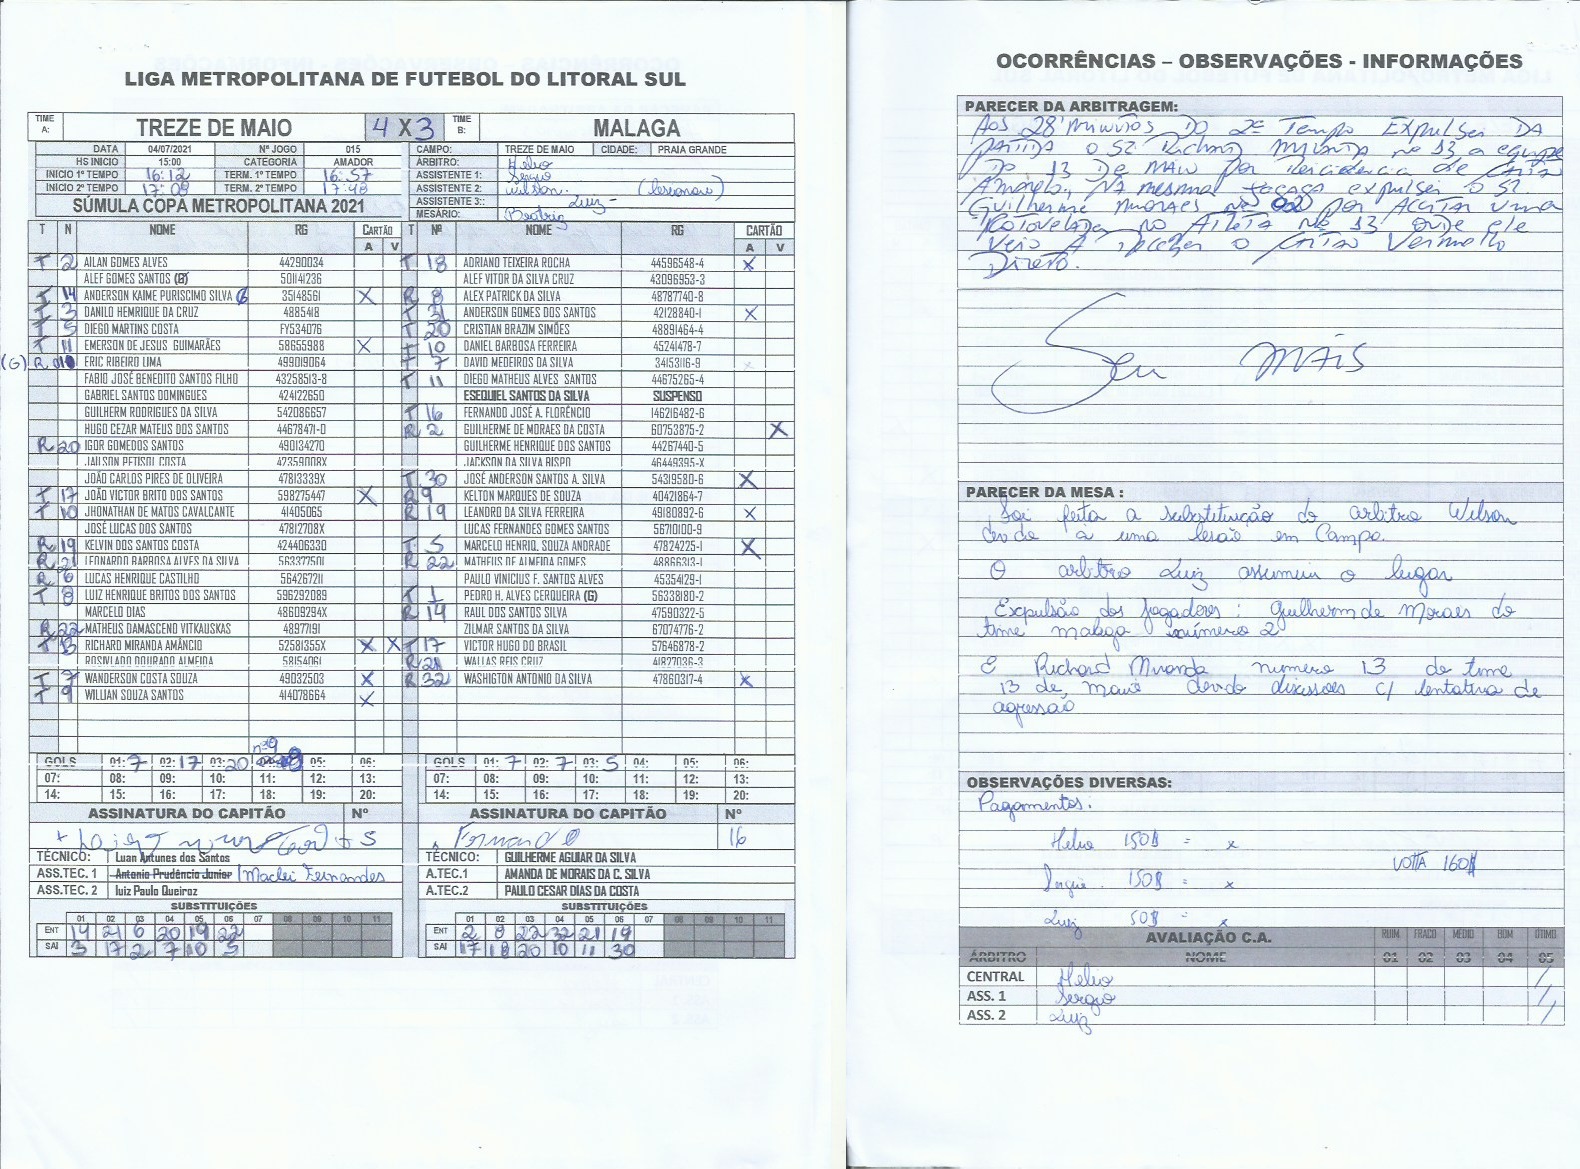 LIGA METROPOLITANA DE FUTEBOL DO LITORAL SUL
TIME A: TREZE DE MAIO 4 X 3 TIME B: MALAGA
DATA 04/07/2021 Nº JOGO 015 CAMPO: TREZE DE MAIO CIDADE: PRAIA GRANDE
HS INICIO 15:00 CATEGORIA AMADOR ÁRBITRO: Helio
INICIO 1º TEMPO 16:12 TERM. 1º TEMPO 16:57 ASSISTENTE 1: Sergio
INICIO 2º TEMPO 17:08 TERM. 2º TEMPO 17:48 ASSISTENTE 2: Wilson.
SÚMULA COPA METROPOLITANA 2021 ASSISTENTE 3:: Luiz -
MESÁRIO: Beatriz
T N NOME RG CARTÃO A V T Nº NOME RG CARTÃO A V
T 2 AILAN GOMES ALVES 44290034 T 18 ADRIANO TEIXEIRA ROCHA 44596548-4 X
ALEF GOMES SANTOS (G) 501141236 ALEF VITOR DA SILVA CRUZ 43096953-3
T 14 ANDERSON KAIME PURISCIMO SILVA G 35148561 X R 8 ALEX PATRICK DA SILVA 48787740-8
T 3 DANILO HEMRIQUE DA CRUZ 4885418 T 31 ANDERSON GOMES DOS SANTOS 42128840-1 X
T 5 DIEGO MARTINS COSTA FY534076 T 20 CRISTIAN BRAZIM SIMÕES 48891464-4
T 11 EMERSON DE JESUS GUIMARÃES 58655988 X T 10 DANIEL BARBOSA FERREIRA 45241478-7
(G) R ERIC RIBEIRO LIMA 499019064 T 7 DAVID MEDEIROS DA SILVA 34153116-9 x
FABIO JOSÉ BENEDITO SANTOS FILHO 43258513-8 T 11 DIEGO MATHEUS ALVES SANTOS 44675265-4
GABRIEL SANTOS DOMINGUES 424122650 ESEQUIEL SANTOS DA SILVA SUSPENSO
GUILHERM RODRIGUES DA SILVA 542086657 T 16 FERNANDO JOSÉ A. FLORÊNCIO 146216482-6
HUGO CEZAR MATEUS DOS SANTOS 44678471-0 R 2 GUILHERME DE MORAES DA COSTA 60753875-2 X
R 20 IGOR GOMEDOS SANTOS 490134270 GUILHERME HENRIQUE DOS SANTOS 44267440-5
JAILSON PETISOL COSTA 47359008X JACKSON DA SILVA BISPO 46449395-X
JOÃO CARLOS PIRES DE OLIVEIRA 47813339X T 30 JOSÉ ANDERSON SANTOS A. SILVA 54319580-6 X
T 17 JOÃO VICTOR BRITO DOS SANTOS 598275447 X R 9 KELTON MARQUES DE SOUZA 40421864-7
T 10 JHONATHAN DE MATOS CAVALCANTE 41405065 R 19 LEANDRO DA SILVA FERREIRA 49180892-6 X
JOSÉ LUCAS DOS SANTOS 47812708X LUCAS FERNANDES GOMES SANTOS 56710100-9
R 19 KELVIN DOS SANTOS COSTA 424406330 T 5 MARCELO HENRIQ. SOUZA ANDRADE 47824225-1 X
R 21 LEONARDO BARBOSA ALVES DA SILVA 563377501 R 22 MATHEUS DE ALMEIDA GOMES 48866313-1
R 6 LUCAS HENRIQUE CASTILHO 564267211 PAULO VINICIUS F. SANTOS ALVES 45354129-1
T 8 LUIZ HENRIQUE BRITOS DOS SANTOS 596292089 T 1 PEDRO H. ALVES CERQUEIRA (G) 56338180-2
MARCELO DIAS 48609294X R 14 RAUL DOS SANTOS SILVA 47590322-5
R 22 MATHEUS DAMASCENO VITKAUSKAS 48977191 ZILMAR SANTOS DA SILVA 67074776-2
T 13 RICHARD MIRANDA AMÂNCIO 52581355X X X T 17 VICTOR HUGO DO BRASIL 57646878-2
ROSIVLADO DOURADO ALMEIDA 58154061 R 21 WALLAS REIS CRUZ 41827036-3
T 7 WANDERSON COSTA SOUZA 49032503 X R 32 WASHIGTON ANTONIO DA SILVA 47860317-4 X
T 9 WILLIAN SOUZA SANTOS 414078664 X
nº9
GOLS 01: 7 02: 17 03: 20 05: 06: GOLS 01: 7 02: 7 03: 5 04: 05: 06:
07: 08: 09: 10: 11: 12: 13: 07: 08: 09: 10: 11: 12: 13:
14: 15: 16: 17: 18: 19: 20: 14: 15: 16: 17: 18: 19: 20:
ASSINATURA DO CAPITÃO Nº ASSINATURA DO CAPITÃO Nº
5 16
TÉCNICO: Luan Antunes dos Santos TÉCNICO: GUILHERME AGUIAR DA SILVA
ASS.TEC. 1 Antonio Prudêncio Junior Maclei Fernandes A.TEC.1 AMANDA DE MORAIS DA C. SILVA
ASS.TEC. 2 luiz Paulo Queiroz A.TEC.2 PAULO CESAR DIAS DA COSTA
SUBSTITUIÇÕES SUBSTITUIÇÕES
01 02 03 04 05 06 07 08 09 10 11 01 02 03 04 05 06 07 08 09 10 11
ENT 14 21 6 20 19 22 ENT 2 8 22 32 21 19
SAI 3 17 2 7 10 5 SAI 17 18 20 10 11 30
OCORRÊNCIAS – OBSERVAÇÕES - INFORMAÇÕES
PARECER DA ARBITRAGEM:
Aos 28 minutos do 2º Tempo Expulsei DA
partida o Sr. Richard Miranda nº 13 a equipe
do 13 de Maio por reicidencia de Cartão
Amarelo, na mesma expulsei o Sr.
Guilherme Moraes nº 02 por Acertar uma
Cotovelada no Atleta nº 13 onde ele
veio A receber o Cartão Vermelho
Direto.
Sem Mais
PARECER DA MESA :
Foi feita a substituição do arbitro Wilson
devido à uma lesão em Campo.
O arbitro Luiz assumiu o lugar
Expulsão dos jogadores: Guilherm de Moraes do
time malaga número 2
E Richard Miranda numero 13 do time
13 de maio devido discussões c/ tentativa de
agressão
OBSERVAÇÕES DIVERSAS:
Pagamentos:
Helio 150$ = x
VOLTA 160$
150$ = x
Luiz 50$ = x
AVALIAÇÃO C.A. RUIM FRACO MEDIO BOM OTIMO
ÁRBITRO NOME 01 02 03 04 05
CENTRAL Helio /
ASS. 1 Sergio /
ASS. 2 Luiz /